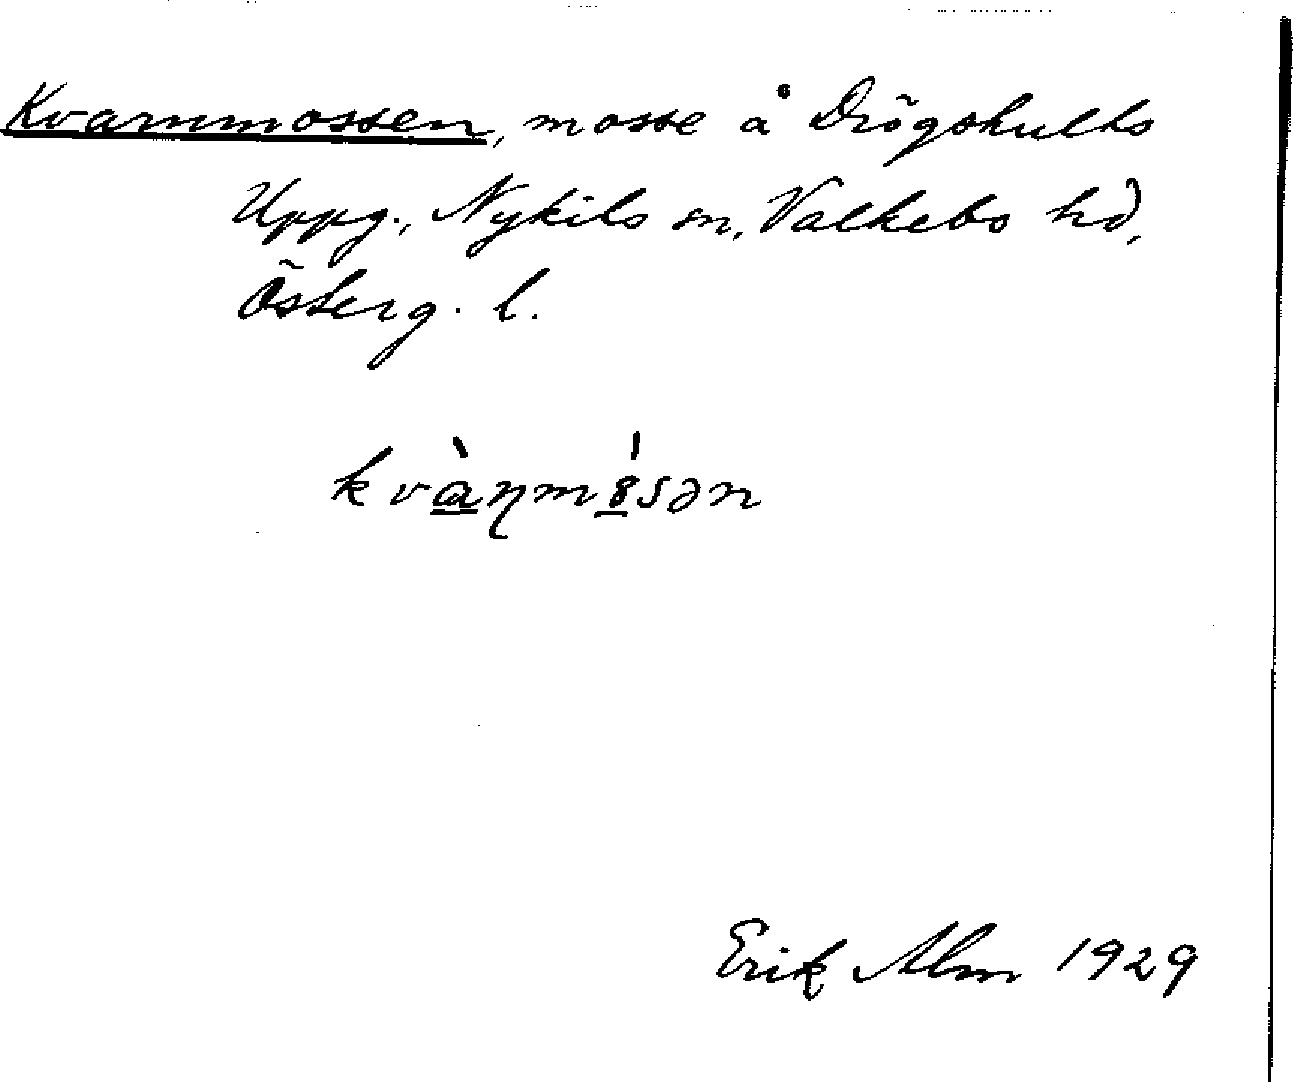 Kvarnmossen, mosse å Drögshults
Uppg., Nykils sn, Valkebo hd,
Österg. l.
kvàꞃmósən
Erik Alm 1929